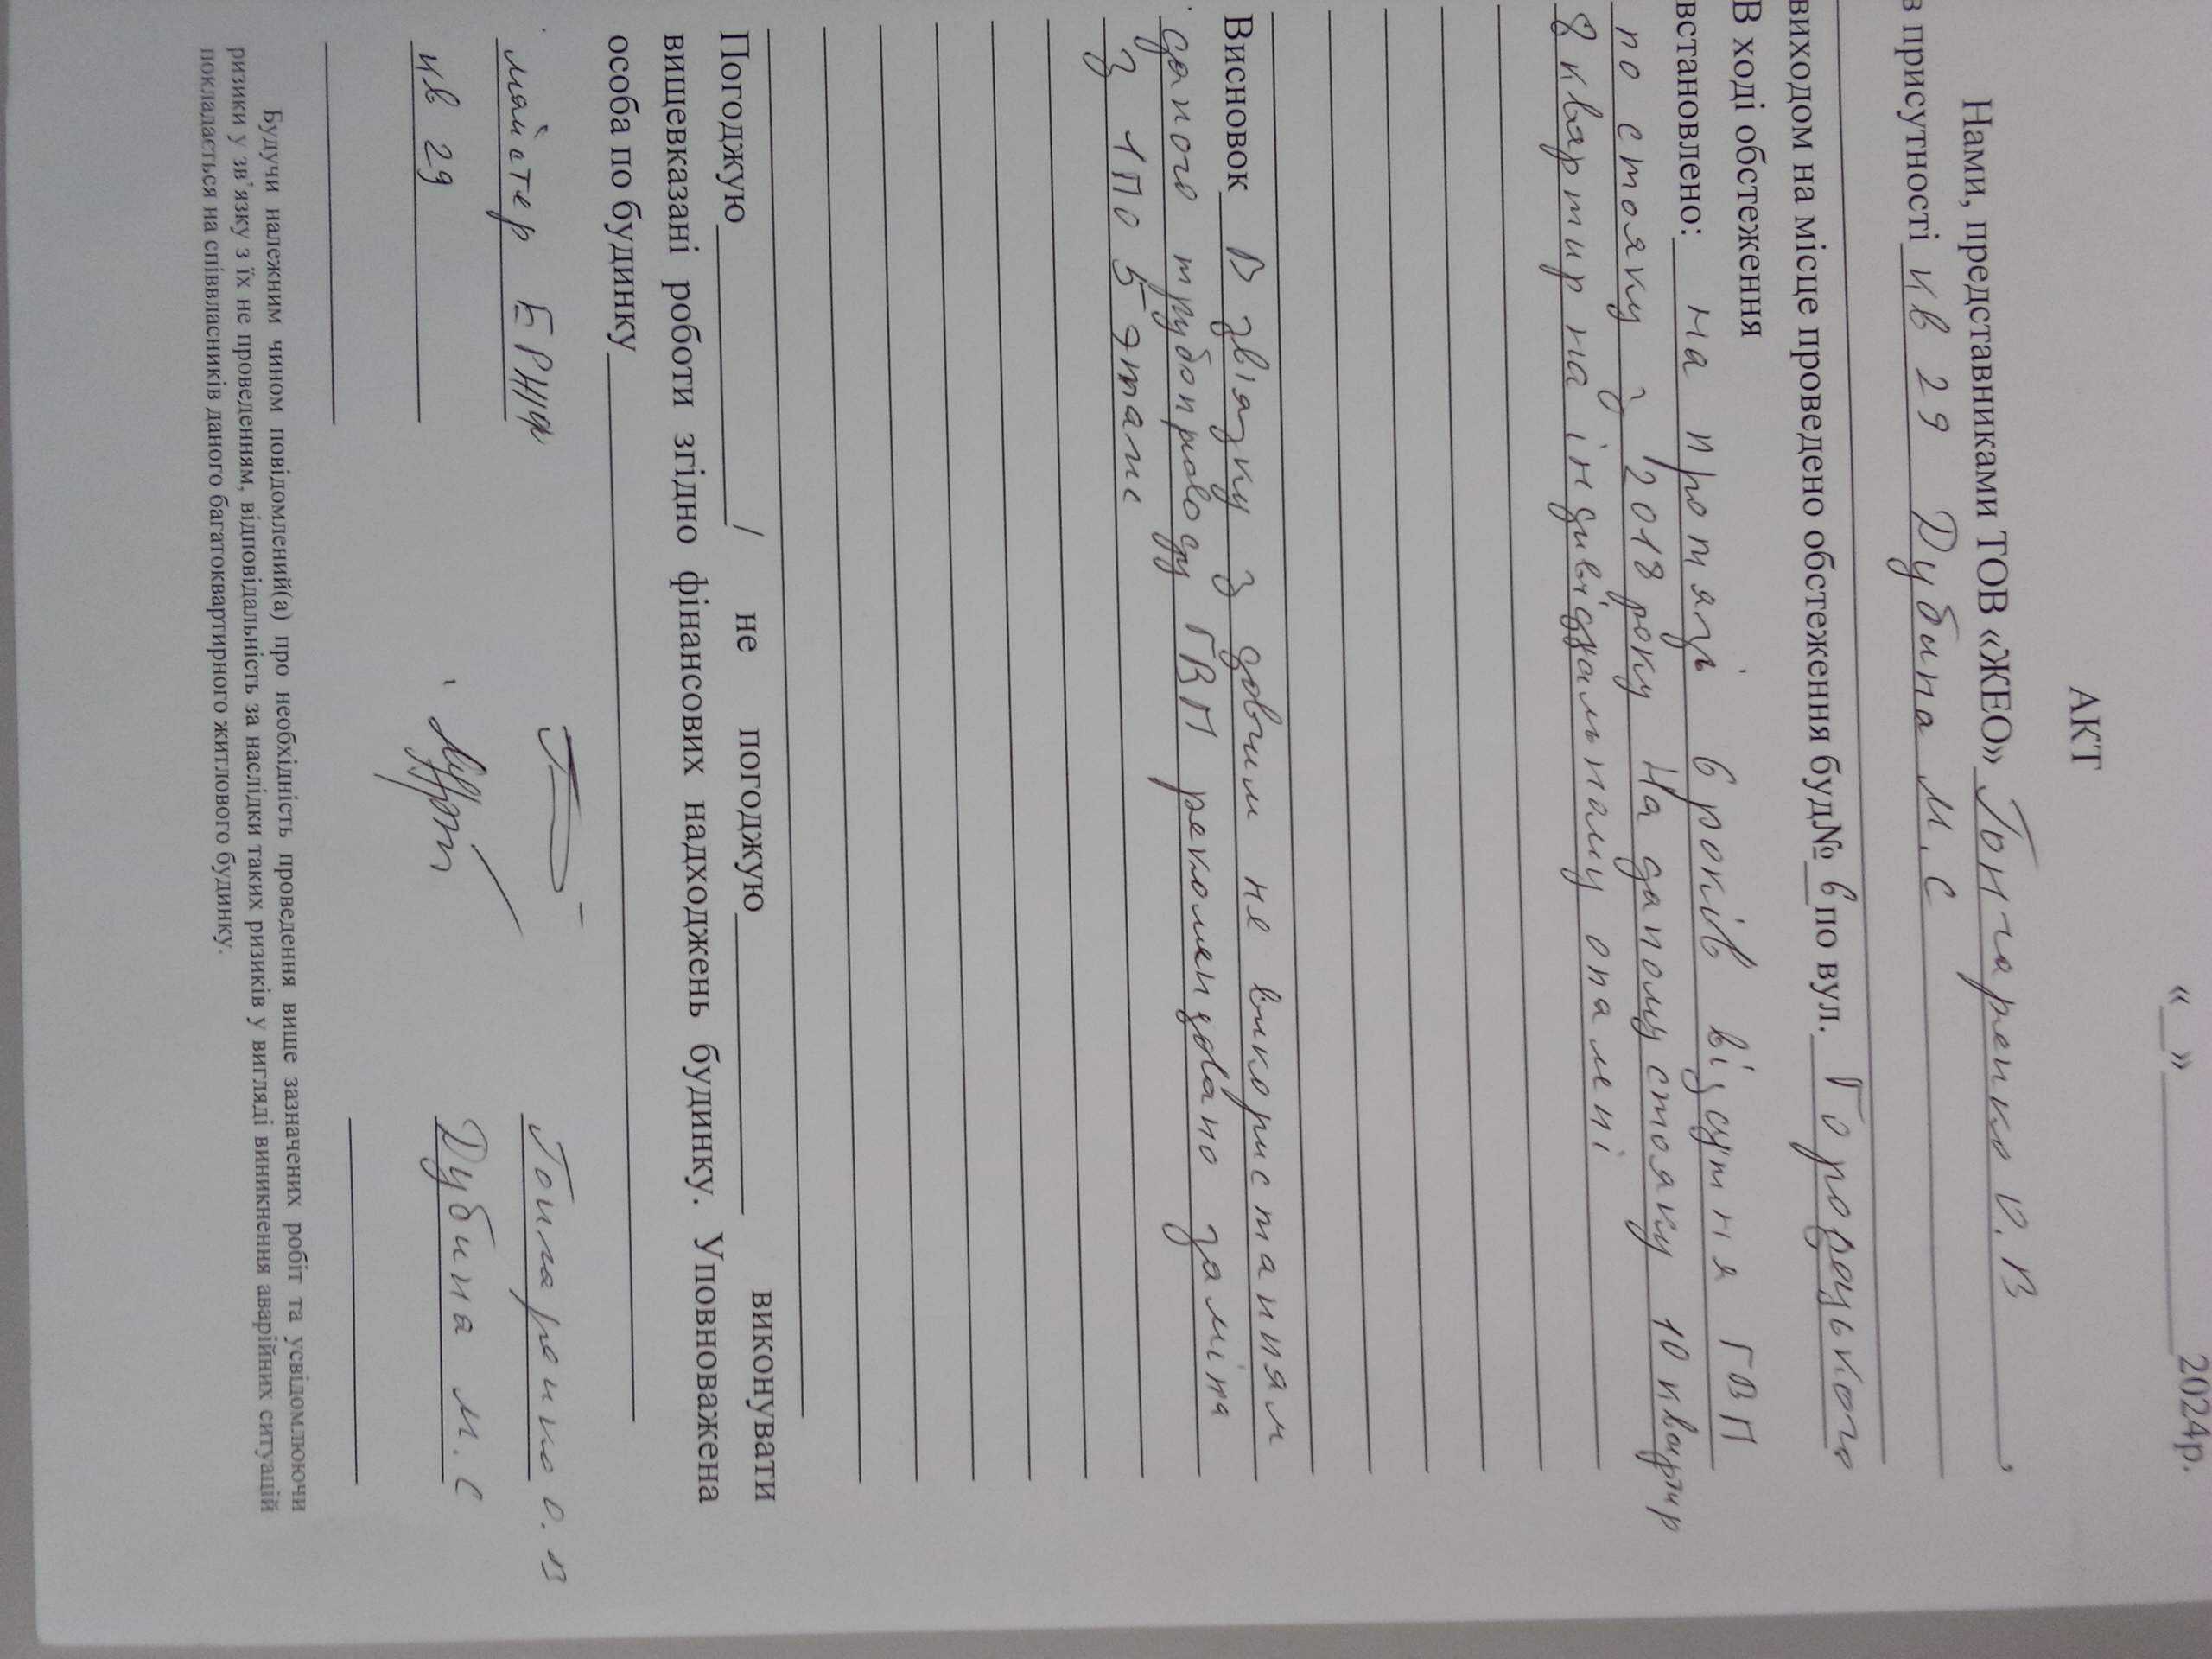 «__»__________2024р.
АКТ
Нами, представниками ТОВ «ЖЕО» Гончаренко О.В,
в присутності кв 29 Дубина М.С
виходом на місце проведено обстеження буд№ 6 по вул. Городацького
В ході обстеження
встановлено: на протязі 6 років відсутня ГВП
по стояку з 2018 року На даному стояку 10 квартир
8 квартир на індивідуальному опалені
Висновок В звіязку з довгим не використанням
даного трубопроводу ГВП рекомендовано заміна
з 1 по 5 этапе
Погоджую__________/ не погоджую__________ виконувати
вищевказані роботи згідно фінансових надходжень будинку. Уповноважена
особа по будинку
майстер ЕРНЖФ Гончаренко О.В
кв 29 Дубина М.С
Будучи належним чином повідомлений(а) про необхідність проведення вище зазначених робіт та усвідомлюючи
ризики у зв’язку з їх не проведенням, відповідальність за наслідки таких ризиків у вигляді виникнення аварійних ситуацій
покладається на співвласників даного багатоквартирного житлового будинку.